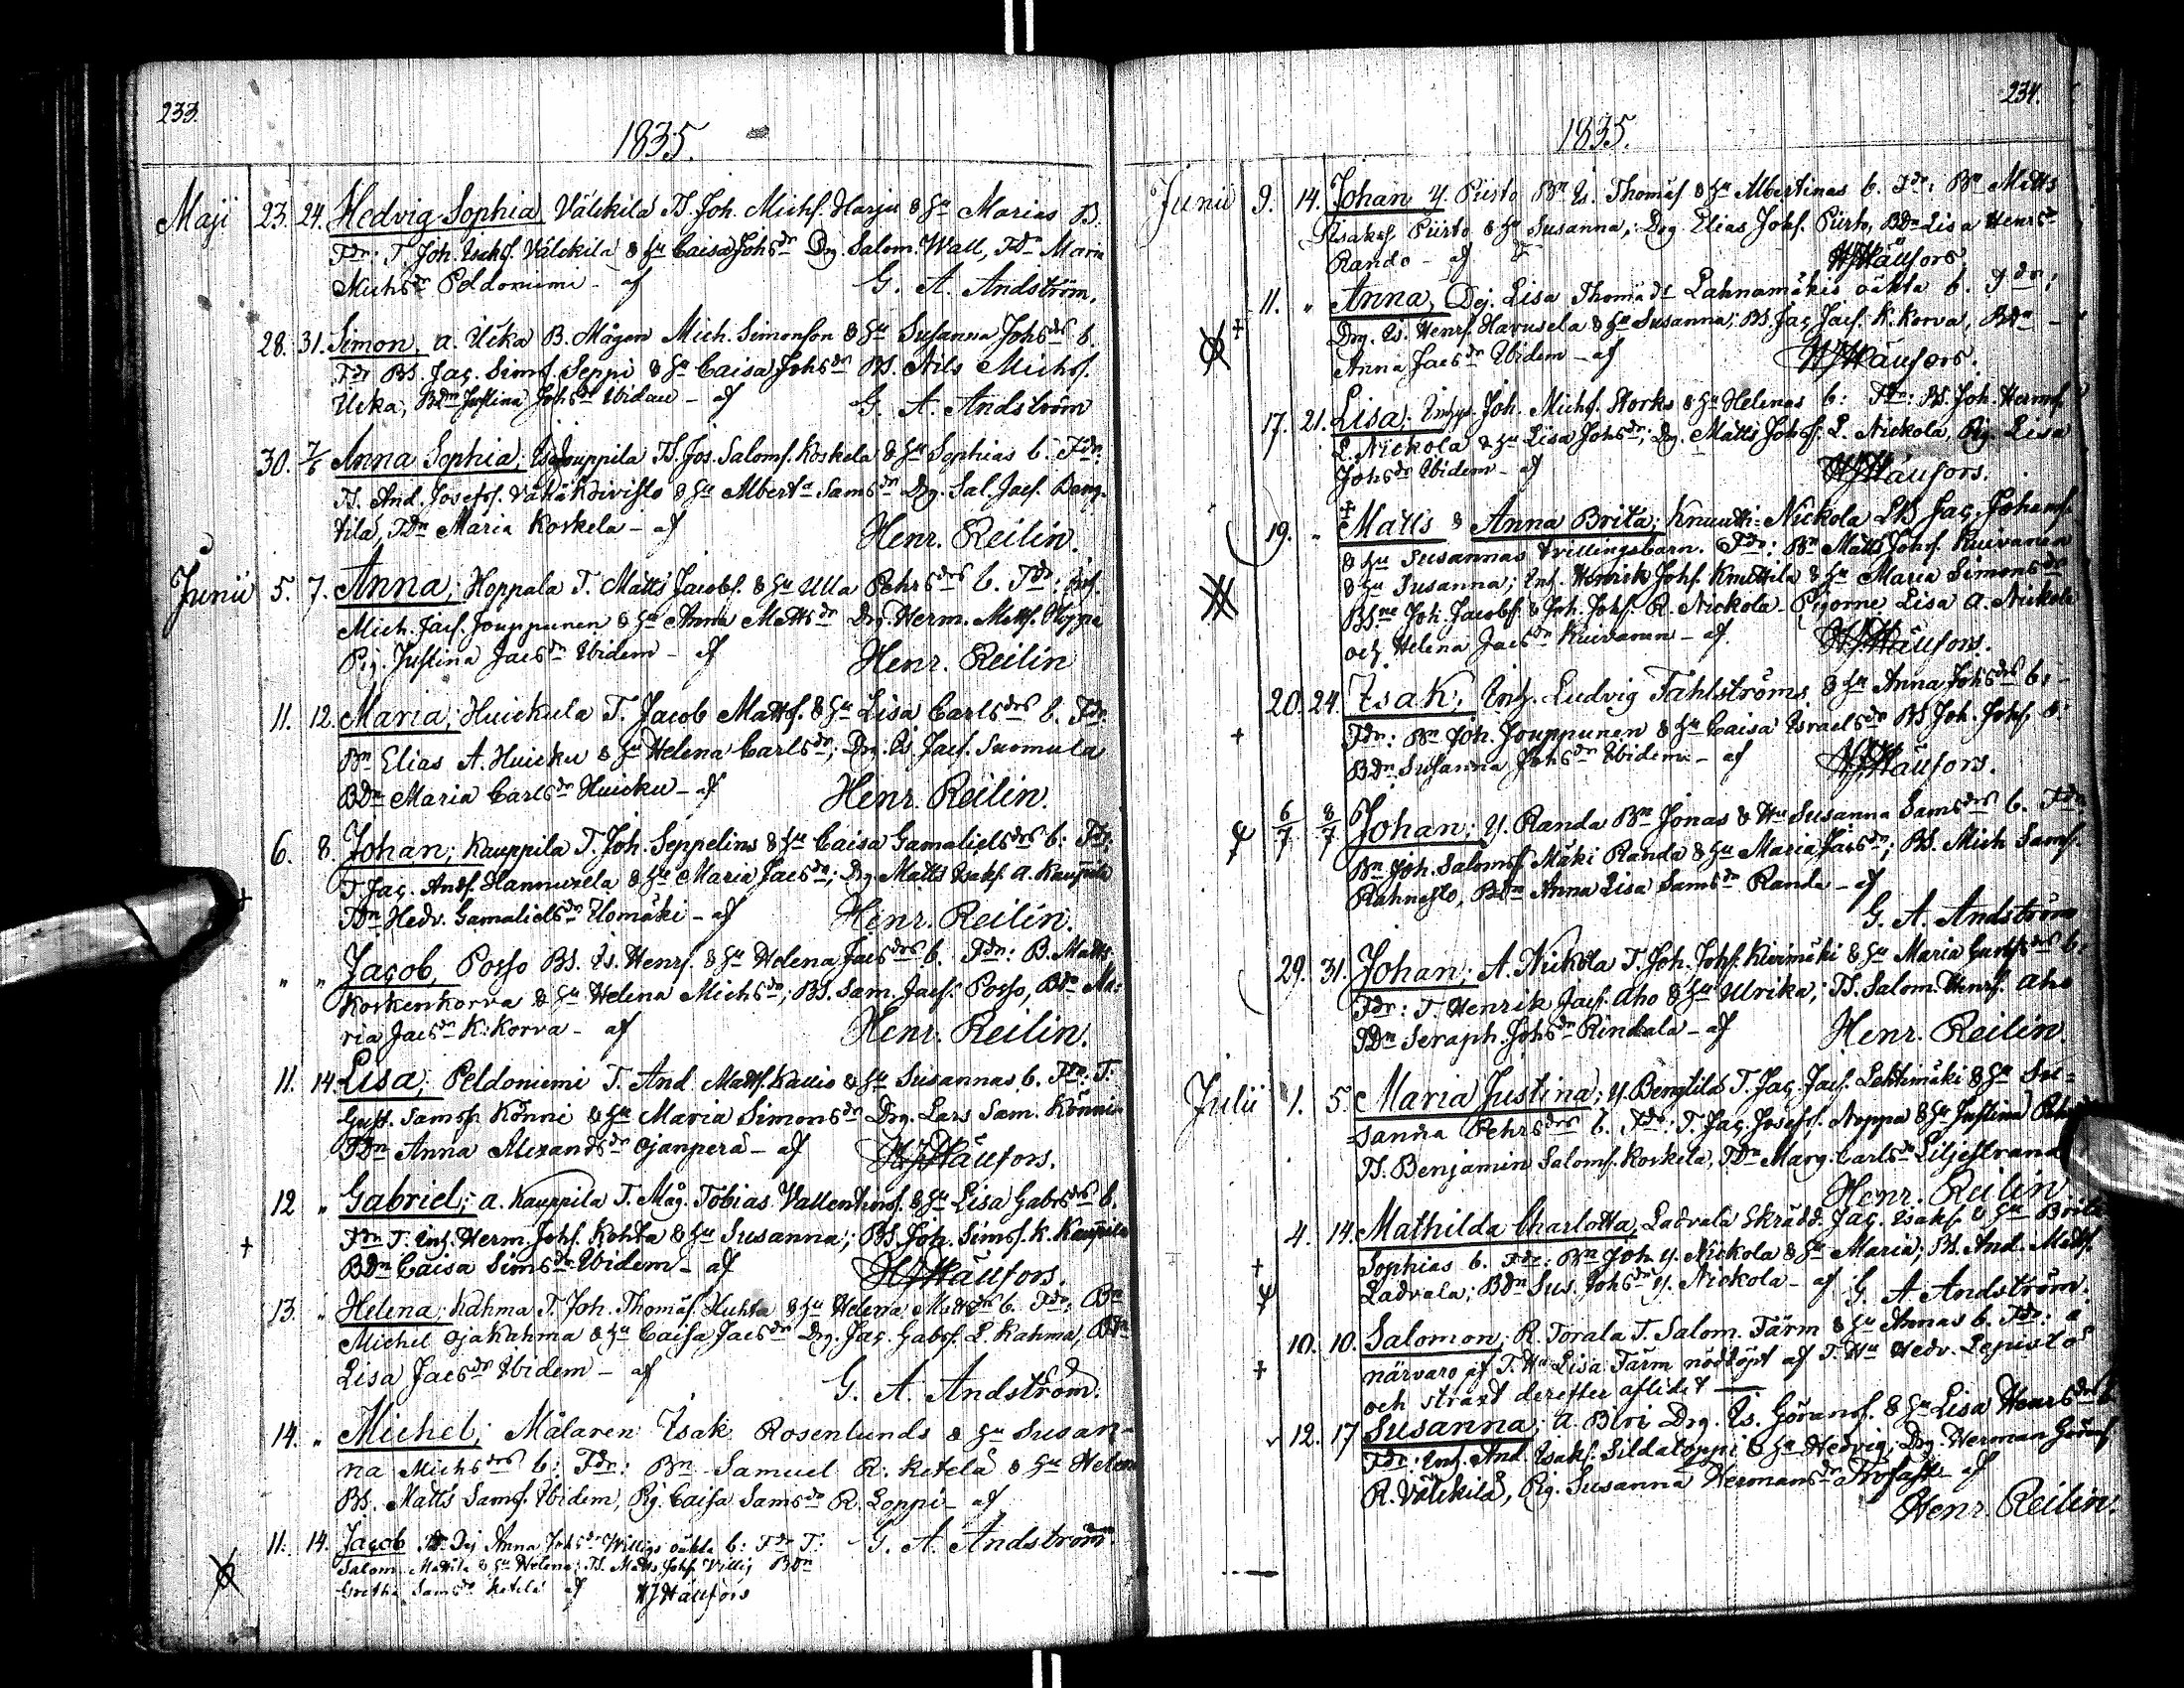 233.
1835.
Maji 23. 24. Hedvig Sophia Välckilä TS. Joh. Michs. Harju & hu Marias B.
Fdr: T. Joh. Isaks. Välckilä & hu Caisa Johsdr Drg Salom. Wall, TDr Maria
Michsdr Peldoniemi - af G. A. Andström.
28. 31. Simon, a. Ucka B. Mågen Mich. Simonson & hu Susanna Johsdrs b.
Fdr BS. Jac. Sims. Seppi & hu Caisa Johsdr BS. Nils Michs.
Ucka, BDr Justina Johsdr Ibidem - af G. A. Andström
30. 7/6 Anna Sophia, Jouppila TS. Jos. Saloms. Koskela & hu Sophias b. Fdr:
TS. And. Josefs. Vähäkoivisto & hu Alberta Samsdr Drg. Sal. Jacs. Beng-
tila, TDr Maria Koskela - af Henr. Reilin.
Junii 5. 7. Anna; Hoppala T. Matts Jacobs. & hu Ulla Pehrsdrs b. Fdr:
Mich. Jacs. Jouppunen & hu Anna Mattsdr Drg. Herm. Matts.
Pig. Justina Jacsdr Ibidem - af Henr. Reilin
11. 12. Maria; Huickula T. Jacob Matts. & hu Lisa Carlsdrs b. Fdr:
Bn Elias A. Huicku & hu Helena Carlsdr; Drg. Is. Jacs. Suomula
BDr Maria Carlsdr Huicku - af Henr. Reilin.
6. 8. Johan; Kauppila T. Joh. Seppelins & hu Caisa Gamalielsdrs b: Fdr:
T. Jac. Ands. Hannuxela & hu Maria Jacsdr; Drg. Matts Isaks. A. Kauppila
TDr Hedv. Gamalielsdr Ilomäki - af Henr. Reilin.
" " Jacob, Posso BS. Is. Henrs. & hu Helena Jacsdrs b. Fdr: B. Matts
Koskenkorva & hu Helena Michsdr; BS. Sam. Jacs. Posso, BDr Ma-
ria Jacsdr K: Korva - af Henr. Reilin.
11. 14. Lisa; Peldoniemi T. And. Matts. Kallio & hu Susannas b. Fdr: T.
Gust. Samss. Könni & hu Maria Simonsdr Drg. Lars Sam. Könni
TDr Anna Alexandsdr Ojanperä - af HJHäufors.
12 " Gabriel; a. Kauppila T. Måg. Tobias Vallentins. & hu Lisa Gabrsdrs b.
Fdr T. Inh. Herm. Johs. Kohta & hu Susanna; BS. Joh. Sims. K. Kauppila
BDr Caisa Simsdr Ibidem - af HJHäufors.
13. " Helena; Kahma T. Joh. Thomas. Huhta & hu Helena Mattsdrs b. Fdr: Bn
Michel Ojakahma & hu Caisa Jacsdr Drg. Jac. Gabrs. L. Kahma, BDr
Lisa Jacsdr Ibidem - af G. A. Andström.
14. " Michel; Målaren Isak Rosenlunds & hu Susan-
na Michsdrs b: Fdr: Bn Samuel R. Ketelä & hu Helena
BS. Matts Sams. Ibidem, Pig. Caisa Samsdr R. Loppi - af
G. A. Andström.
11. 14. Jacob Dej Anna Johsdr Willigs oäkta b: Fdr T:
Salom. Mattila & hu Helena; TS. Matts Johs. Villi; BDr
Gretha Samsdr Ketelä af HJHäufors
234.
1835.
Junii 9. 14. Johan Y. Piirto Bn Is. Thomas. & hu Albertinas b. Fdr: Bn Matts
Isaks. Piirto & hu Susanna; Drg. Elias Johs. Piirto, BDr Lisa Henrsdr
Rando - af HJHäufors.
11. " Anna, Dej. Lisa Thomasdr Lahnamäkis oäkta b. Fdr:
Drg. Is. Henrs. Havusela & hu Susanna; BS. Jac. Jacs. K. Korva, BDr -
Anna Jacsdr Ibidem - af HJHäufors.
17. 21. Lisa; Inhys. Joh. Michs. Storks & hu Helenas b: Fdr: BS. Joh. Herms.
L. Nickola & hu Lisa Johsdr; Drg. Matts Johs. L. Nickola, Pig. Lisa
Johsdr Ibidem - af HJHäufors.
19. " Matts & Anna Brita; Knuuti-Nickola LB Jac. Johans.
& hu Susannas tvillingsbarn. Fdr: Bn Matts Johs. Kuivanen
& hu Susanna; Inh. Henrik Johs. Knuttila & hu Maria Simonsdr
BSne Joh. Jacobs. & Joh. Johs. R. Nickola - Pigorne Lisa A. Nickola
och Helena Jacsdr Kuivanen - af HJHäufors.
20. 24. Isak; Inh. Ludvig Fahlströms & hu Anna Johsdrs b: -
Fdr: Bn Joh. Jouppunen & hu Caisa Israelsdr BS Joh. Johs. &
BDr Susanna Johsdr Ibidem - af HJHäufors.
6/7 8/7 Johan; Y. Randa Bn Jonas & Hu Susanna Samsdrs b. Fdr
Bn Joh. Saloms. Mäki Randa & hu Maria Jacsdr; BS. Mich Sams.
Rahnasto, BDr Anna Lisa Samsdr Randa - af
G. A. Andström
29. 31. Johan; A. Nickola T. Joh. Johs. Kivimäki & hu Maria Gustsdrs b:
Fdr: T. Henrik Jacs. Aho & hu Ulrika; TS. Salom. Henrs. Aho
TDr Seraph. Johsdr Rindala - af Henr. Reilin.
Julii 1. 5. Maria Justina; Y. Bengtilä T. Jac. Jacs. Lehtimäki & hu Su-
sanna Pehrsdrs b. Fdr: T. Jac. Josefs. Noppa & hu Justina
TS. Benjamin Saloms. Koskela, TDr Marg. Carlsdr Liljestrand
Henr. Reilin
4. 14. Mathilda Charlotta; Ladvala Skrädd. Jac. Isaks. & hu Brita
Sophias b. Fdr: Bn Joh. Y. Nickola & hu Maria; BS. And. Matts.
Ladvala; BDr Sus. Johsdr Y. Nickola - af G. A Andström.
10. 10. Salomon; R. Torala T. Salom. Tärm & hu Annas b. Fdr: a
närvaro af T. Hu Lisa Tärm nöddöpt af T. Hu Hedv. Lepistö
och straxt derefter aflidit
12. 17 Susanna; a. Biri Drg. Is. Görans. & hu Lisa Henrsdrs b.
Fdr: Inh. And. Isaks. Sildaloppi & hu Hedvig; Drg. Herman Görans.
R. Välckilä, Pig. Susanna Hermansdr Trofast - af
Henr. Reilin.